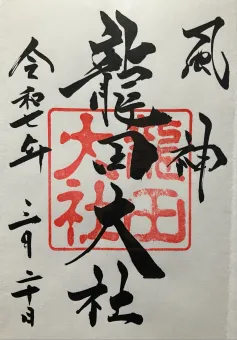 風神
龍田大社
龍田大社
令和七年
三月二十日